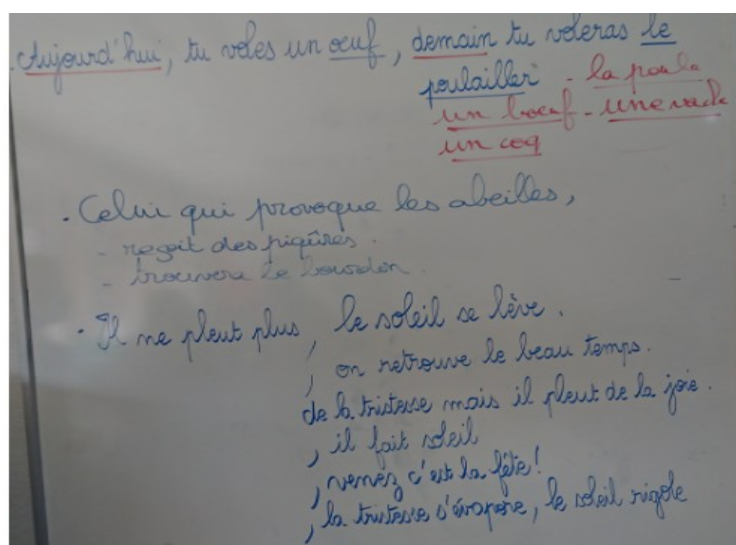 . Aujourd'hui, tu voles un œuf, demain tu voleras le
poulailler - la poule
un bœuf - une vache
un coq
. Celui qui provoque les abeilles,
- reçoit des piqûres.
- trouvera le bourdon.
. Il ne pleut plus, le soleil se lève.
, on retrouve le beau temps.
de la tristesse mais il pleut de la joie.
, il fait soleil
, venez c'est la fête !
, la tristesse s'évapore, le soleil rigole